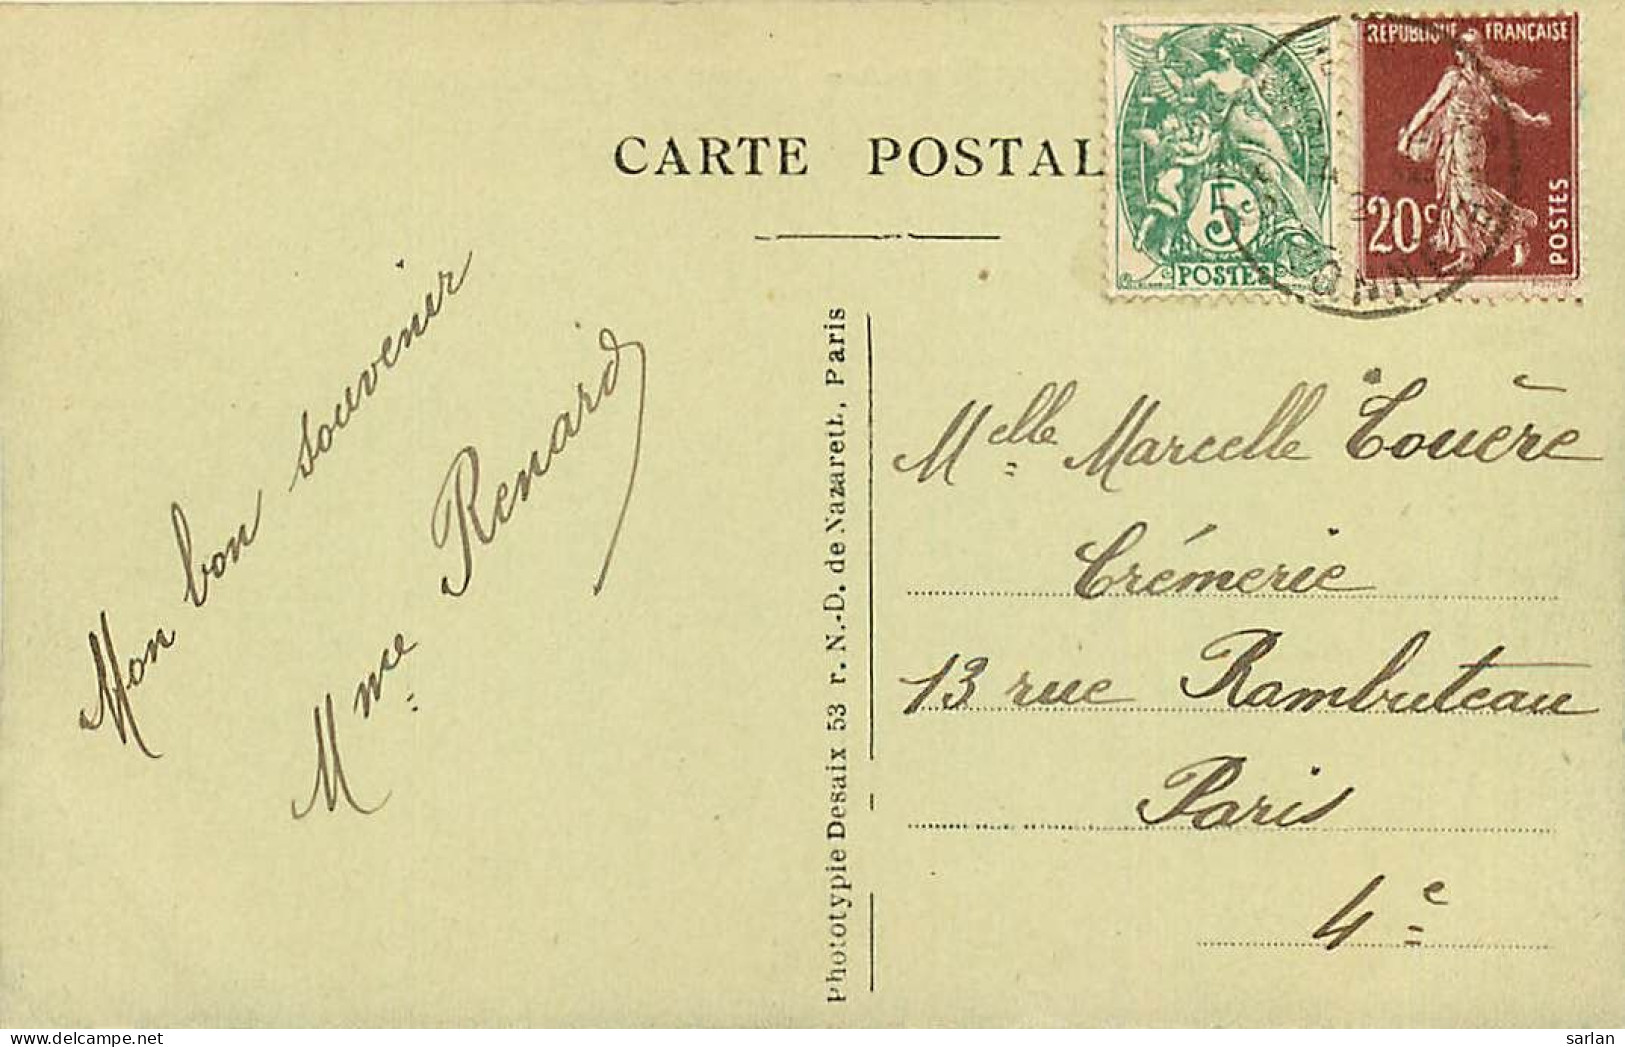 CARTE POSTAL
5c
POSTES
REPUBLIQUE FRANÇAISE
20c
POSTES
Mon bon souvenir
Mme Renard
Phototypie Desaix 53 r. N.-D. de Nazareth, Paris
Melle Marcelle Touère
Crémerie
13 rue Rambuteau
Paris
4e
sarlan